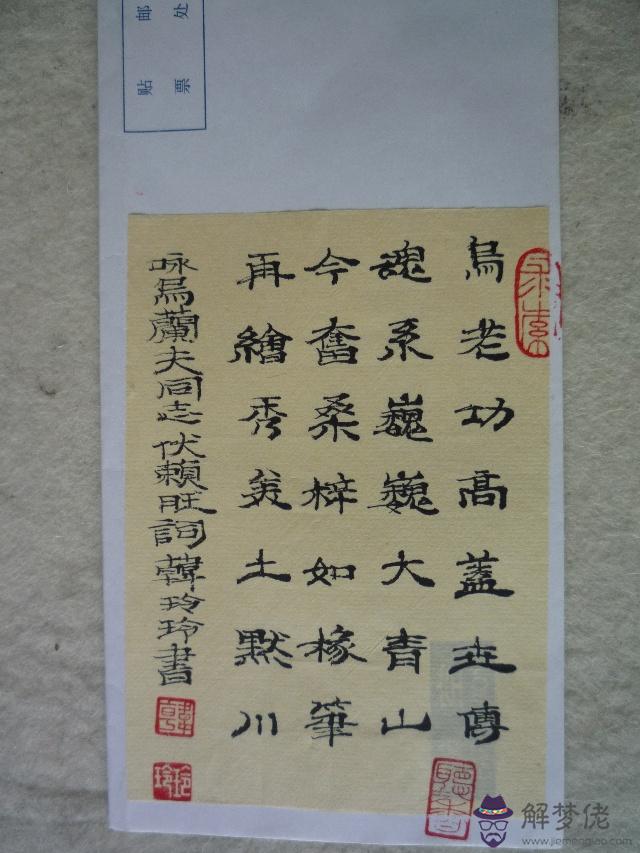 贴 邮
票 处
烏老功高蓋世傳
魂系巍巍大青山
今奮桑梓如椽筆
再繪秀美土默川
咏烏蘭夫同志伏賴旺詞韓玲玲書
韓
玲玲
解梦佬
www.jiemenglao.com